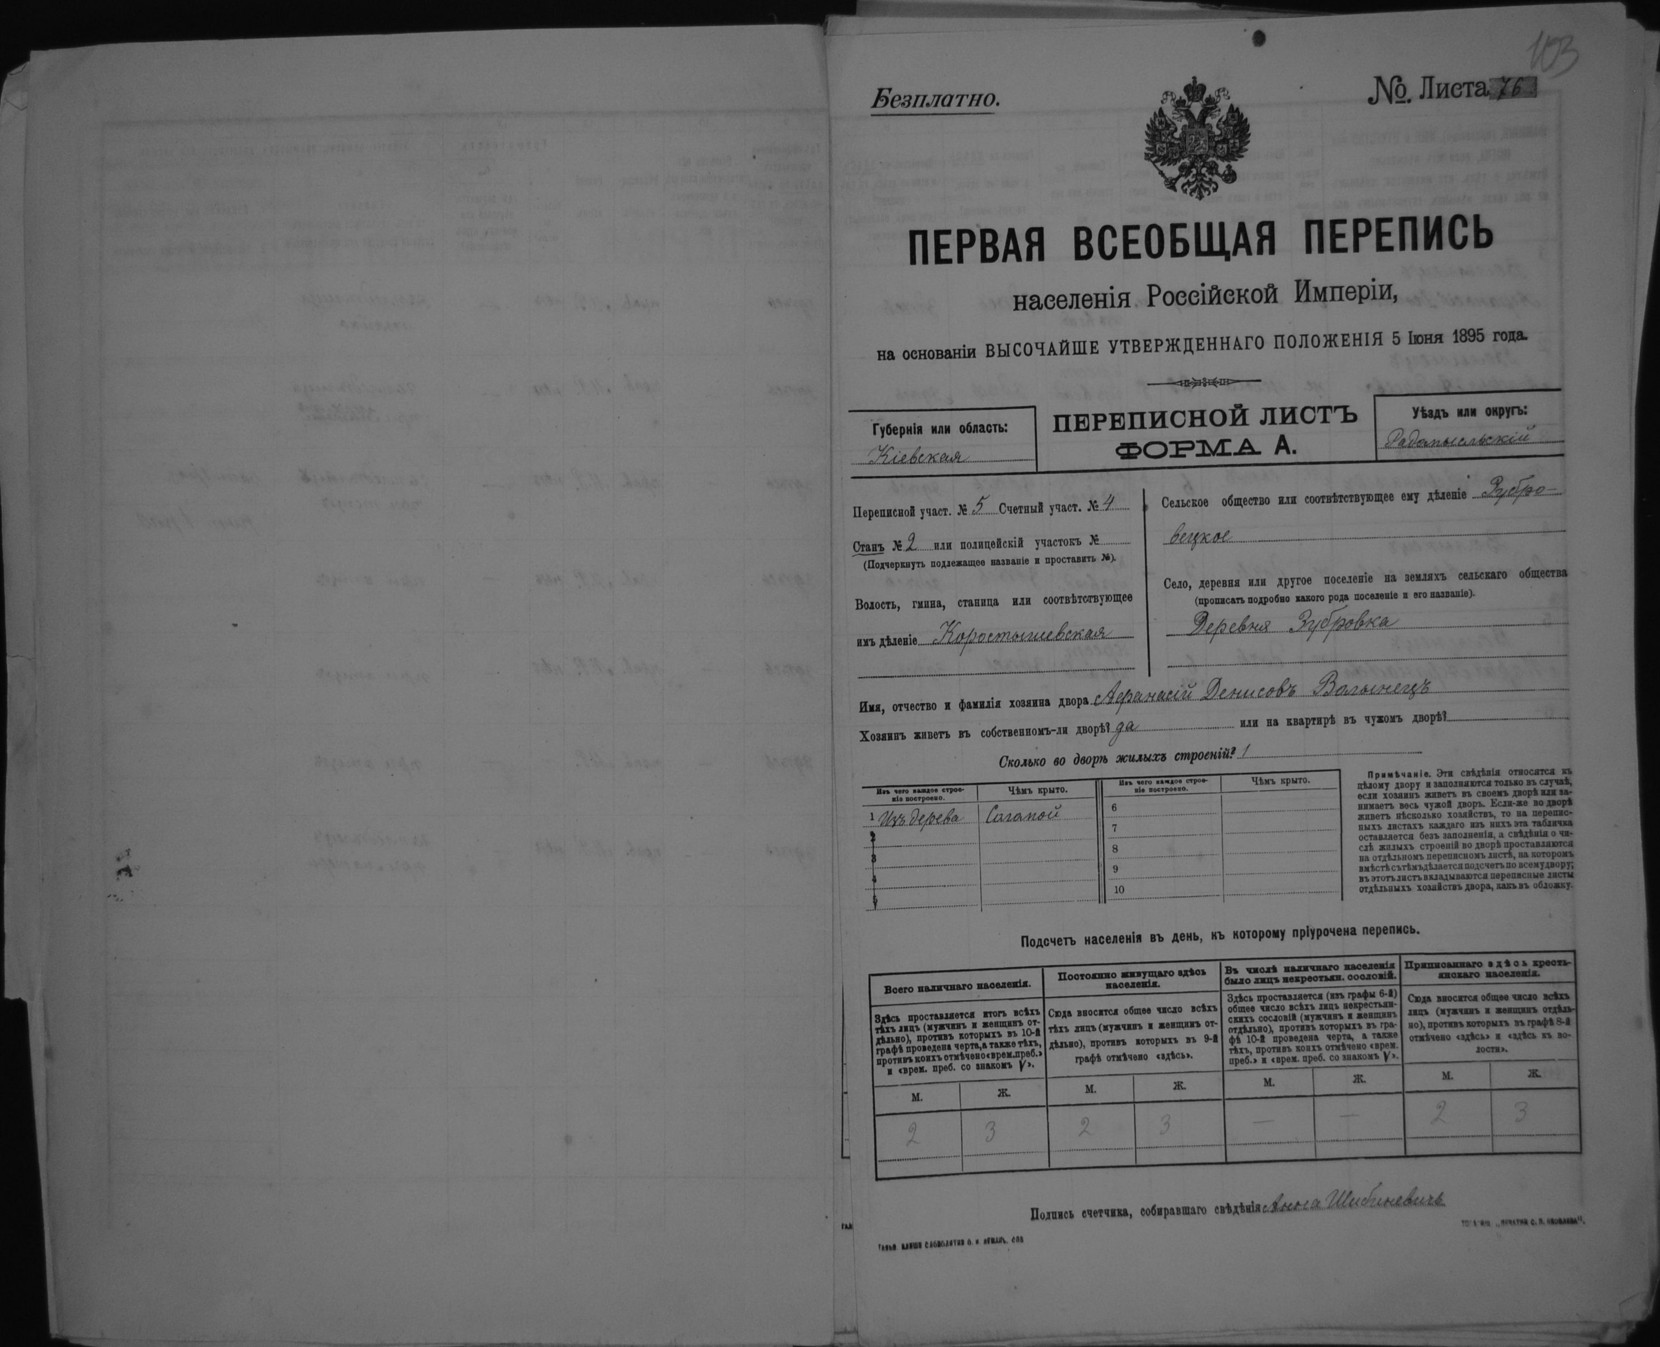 103
Безплатно.
№. Листа 76
ПЕРВАЯ ВСЕОБЩАЯ ПЕРЕПИСЬ
населенія Россійской Имперіи,
на основаніи ВЫСОЧАЙШЕ УТВЕРЖДЕННАГО ПОЛОЖЕНІЯ 5 Іюня 1895 года.
Губернія или область:
Кіевская
ПЕРЕПИСНОЙ ЛИСТЪ
ФОРМА А.
Уѣздъ или округъ:
Радомысльскій
Переписной участ. № 5 Счетный участ. № 4
Станъ № 2 или полицейскій участокъ №
(Подчеркнуть подлежащее названіе и проставить №).
Волость, гмина, станица или соотвѣтствующее
имъ дѣленіе Коростышевская
Сельское общество или соотвѣтствующее ему дѣленіе Зубро-
вецкое
Село, деревня или другое поселеніе на земляхъ сельскаго общества
(прописать подробно какого рода поселеніе и его названіе).
Деревня Зубровка
Имя, отчество и фамилія хозяина двора Афанасій Денисовъ Волынецъ
Хозяинъ живетъ въ собственномъ-ли дворѣ? да или на квартирѣ въ чужомъ дворѣ?
Сколько во дворѣ жилыхъ строеній? 1
Изъ чего каждое строе-
ніе построено.
Чѣмъ крыто.
Изъ чего каждое строе-
ніе построено.
Чѣмъ крыто.
1 Изъ дерева Соломой
2
3
4
5
6
7
8
9
10
Примѣчаніе. Эти свѣдѣнія относятся къ
цѣлому двору и заполняются только въ случаѣ,
если хозяинъ живетъ въ своемъ дворѣ или за-
нимаетъ весь чужой дворъ. Если-же во дворѣ
живетъ нѣсколько хозяйствъ, то на перепис-
ныхъ листахъ каждаго изъ нихъ эта табличка
оставляется безъ заполненія, а свѣдѣнія о чи-
слѣ жилыхъ строеній во дворѣ проставляются
на отдѣльномъ переписномъ листѣ, на которомъ
вмѣстѣ съ тѣмъ дѣлается подсчетъ по всему двору;
въ этотъ листъ вкладываются переписные листы
отдѣльныхъ хозяйствъ двора, какъ въ обложку.
Подсчетъ населенія въ день, къ которому пріурочена перепись.
Всего наличнаго населенія.
Здѣсь проставляется итогъ всѣхъ
тѣхъ лицъ (мужчинъ и женщинъ от-
дѣльно), противъ которыхъ въ 10-й
графѣ проведена черта, а также тѣхъ,
противъ коихъ отмѣчено «врем. преб.»
и «врем. преб. со знакомъ V».
М. Ж.
2 3
Постоянно живущаго здѣсь
населенія.
Сюда вносится общее число всѣхъ
тѣхъ лицъ (мужчинъ и женщинъ от-
дѣльно), противъ которыхъ въ 9-й
графѣ отмѣчено «здѣсь».
М. Ж.
2 3
Въ числѣ наличнаго населенія
было лицъ некрестьян. сословій.
Здѣсь проставляется (изъ графы 6-й)
общее число всѣхъ лицъ некрестьян-
скихъ сословій (мужчинъ и женщинъ
отдѣльно), противъ которыхъ въ гра-
фѣ 10-й проведена черта, а также
тѣхъ, противъ коихъ отмѣчено «врем.
преб.» и «врем. преб. со знакомъ V».
М. Ж.
— —
Приписаннаго здѣсь кресть-
янскаго населенія.
Сюда вносится общее число всѣхъ
лицъ (мужчинъ и женщинъ отдѣль-
но), противъ которыхъ въ графѣ 8-й
отмѣчено «здѣсь» и «здѣсь въ во-
лости».
М. Ж.
2 3
Подпись счетчика, собиравшаго свѣдѣнія